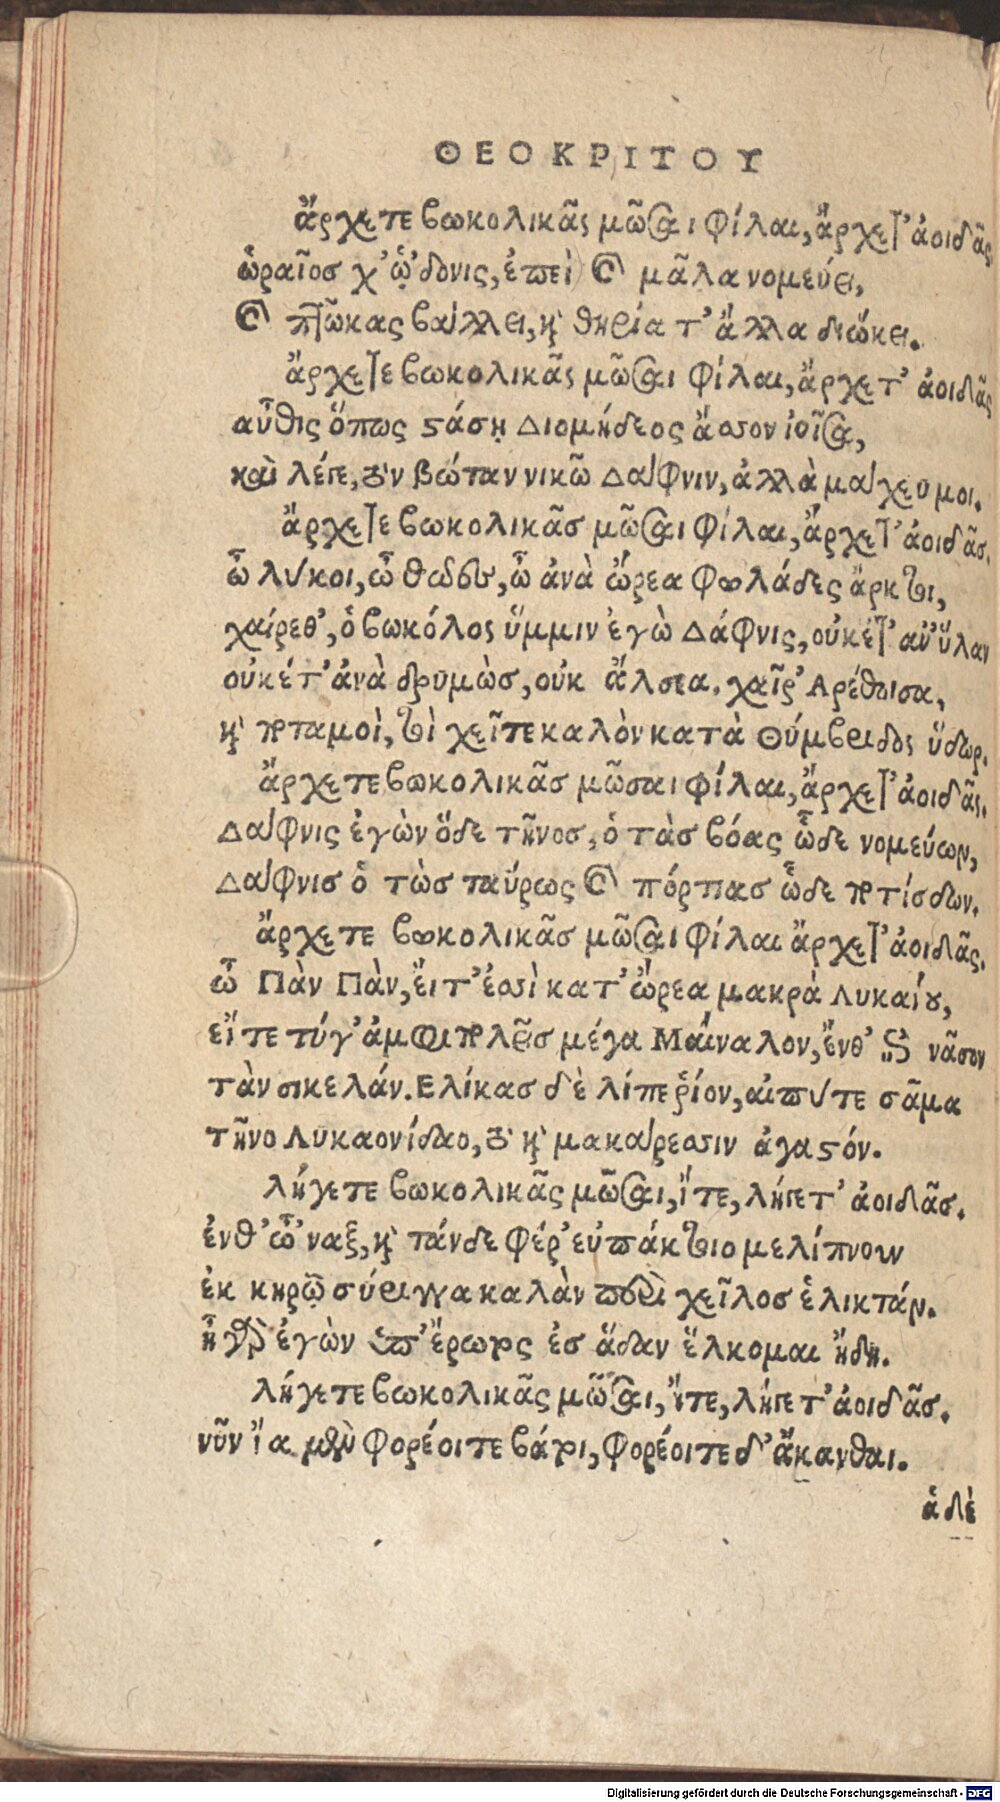 ΘΕΟΚΡΙΤΟΥ
ἄρχετε βωκολικᾶς μῶσαι φίλαι, ἄρχετ' ἀοιδᾶς
ὡραῖος χ' ᾤδονις, ἐπεὶ καὶ μᾶλα νομεύει,
καὶ πτῶκας βάλλει, καὶ θηρία τ' ἄλλα διώκει.
ἄρχετε βωκολικᾶς μῶσαι φίλαι, ἄρχετ' ἀοιδᾶς
αὖθις ὅπως στάσῃ Διομήδεος ἄσσον ἰοῖσα,
καὶ λέγε, τὸν βώταν νικῶ Δάφνιν, ἀλλὰ μάχευ μοι.
ἄρχετε βωκολικᾶς μῶσαι φίλαι, ἄρχετ' ἀοιδᾶς.
ὦ λύκοι, ὦ θῶες, ὦ ἀνὰ ὤρεα φωλάδες ἄρκτοι,
χαίρεθ', ὁ βωκόλος ὔμμιν ἐγὼ Δάφνις, οὐκέτ' ἀν' ὕλαν
οὐκέτ' ἀνὰ δρυμὼς, οὐκ ἄλσεα. χαῖρ' Αρέθοισα,
καὶ ποταμοὶ, τοὶ χεῖτε καλὸν κατὰ Θύμβριδος ὕδωρ.
ἄρχετε βωκολικᾶς μῶσαι φίλαι, ἄρχετ' ἀοιδᾶς.
Δάφνις ἐγὼν ὅδε τῆνος, ὁ τὰς βόας ὧδε νομεύων,
Δάφνις ὁ τὼς ταύρως καὶ πόρτιας ὧδε ποτίσδων.
ἄρχετε βωκολικᾶς μῶσαι φίλαι ἄρχετ' ἀοιδᾶς.
ὦ Πὰν Πὰν, εἴτ' ἐσσὶ κατ' ὤρεα μακρὰ Λυκαίου,
εἴτε τύγ' ἀμφιπολεῖς μέγα Μαίναλον, ἔνθ' ἐπὶ νᾶσον
τὰν σικελάν. Ελίκας δὲ λίπε ῥίον, αἰπύ τε σᾶμα
τῆνο Λυκαονίδαο, τὸ καὶ μακάρεσσιν ἀγαστόν.
λήγετε βωκολικᾶς μῶσαι, ἴτε, λήγετ' ἀοιδᾶς.
ἐνθ' ὦ 'ναξ, καὶ τάνδε φέρ' εὐπάκτοιο μελίπνουν
ἐκ κηρῶ σύριγγα καλὰν περὶ χεῖλος ἑλικτάν.
ἦ γὰρ ἐγὼν ὑπ' ἔρωτος ἐς ᾅδαν ἕλκομαι ἤδη.
λήγετε βωκολικᾶς μῶσαι, ἴτε, λήγετ' ἀοιδᾶς.
νῦν ἴα μὲν φορέοιτε βάτοι, φορέοιτε δ' ἄκανθαι.
ἁ δὲ
Digitalisierung gefördert durch die Deutsche Forschungsgemeinschaft - DFG